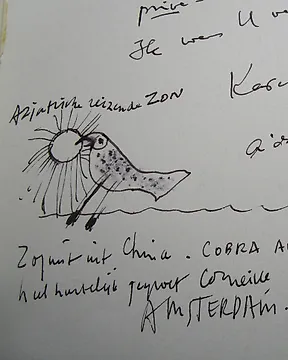 prive
Ik was U
Aziatische reizende ZON
Zojuist uit China. COBRA
hartelijk gegroet Corneille
AMSTERDAM.